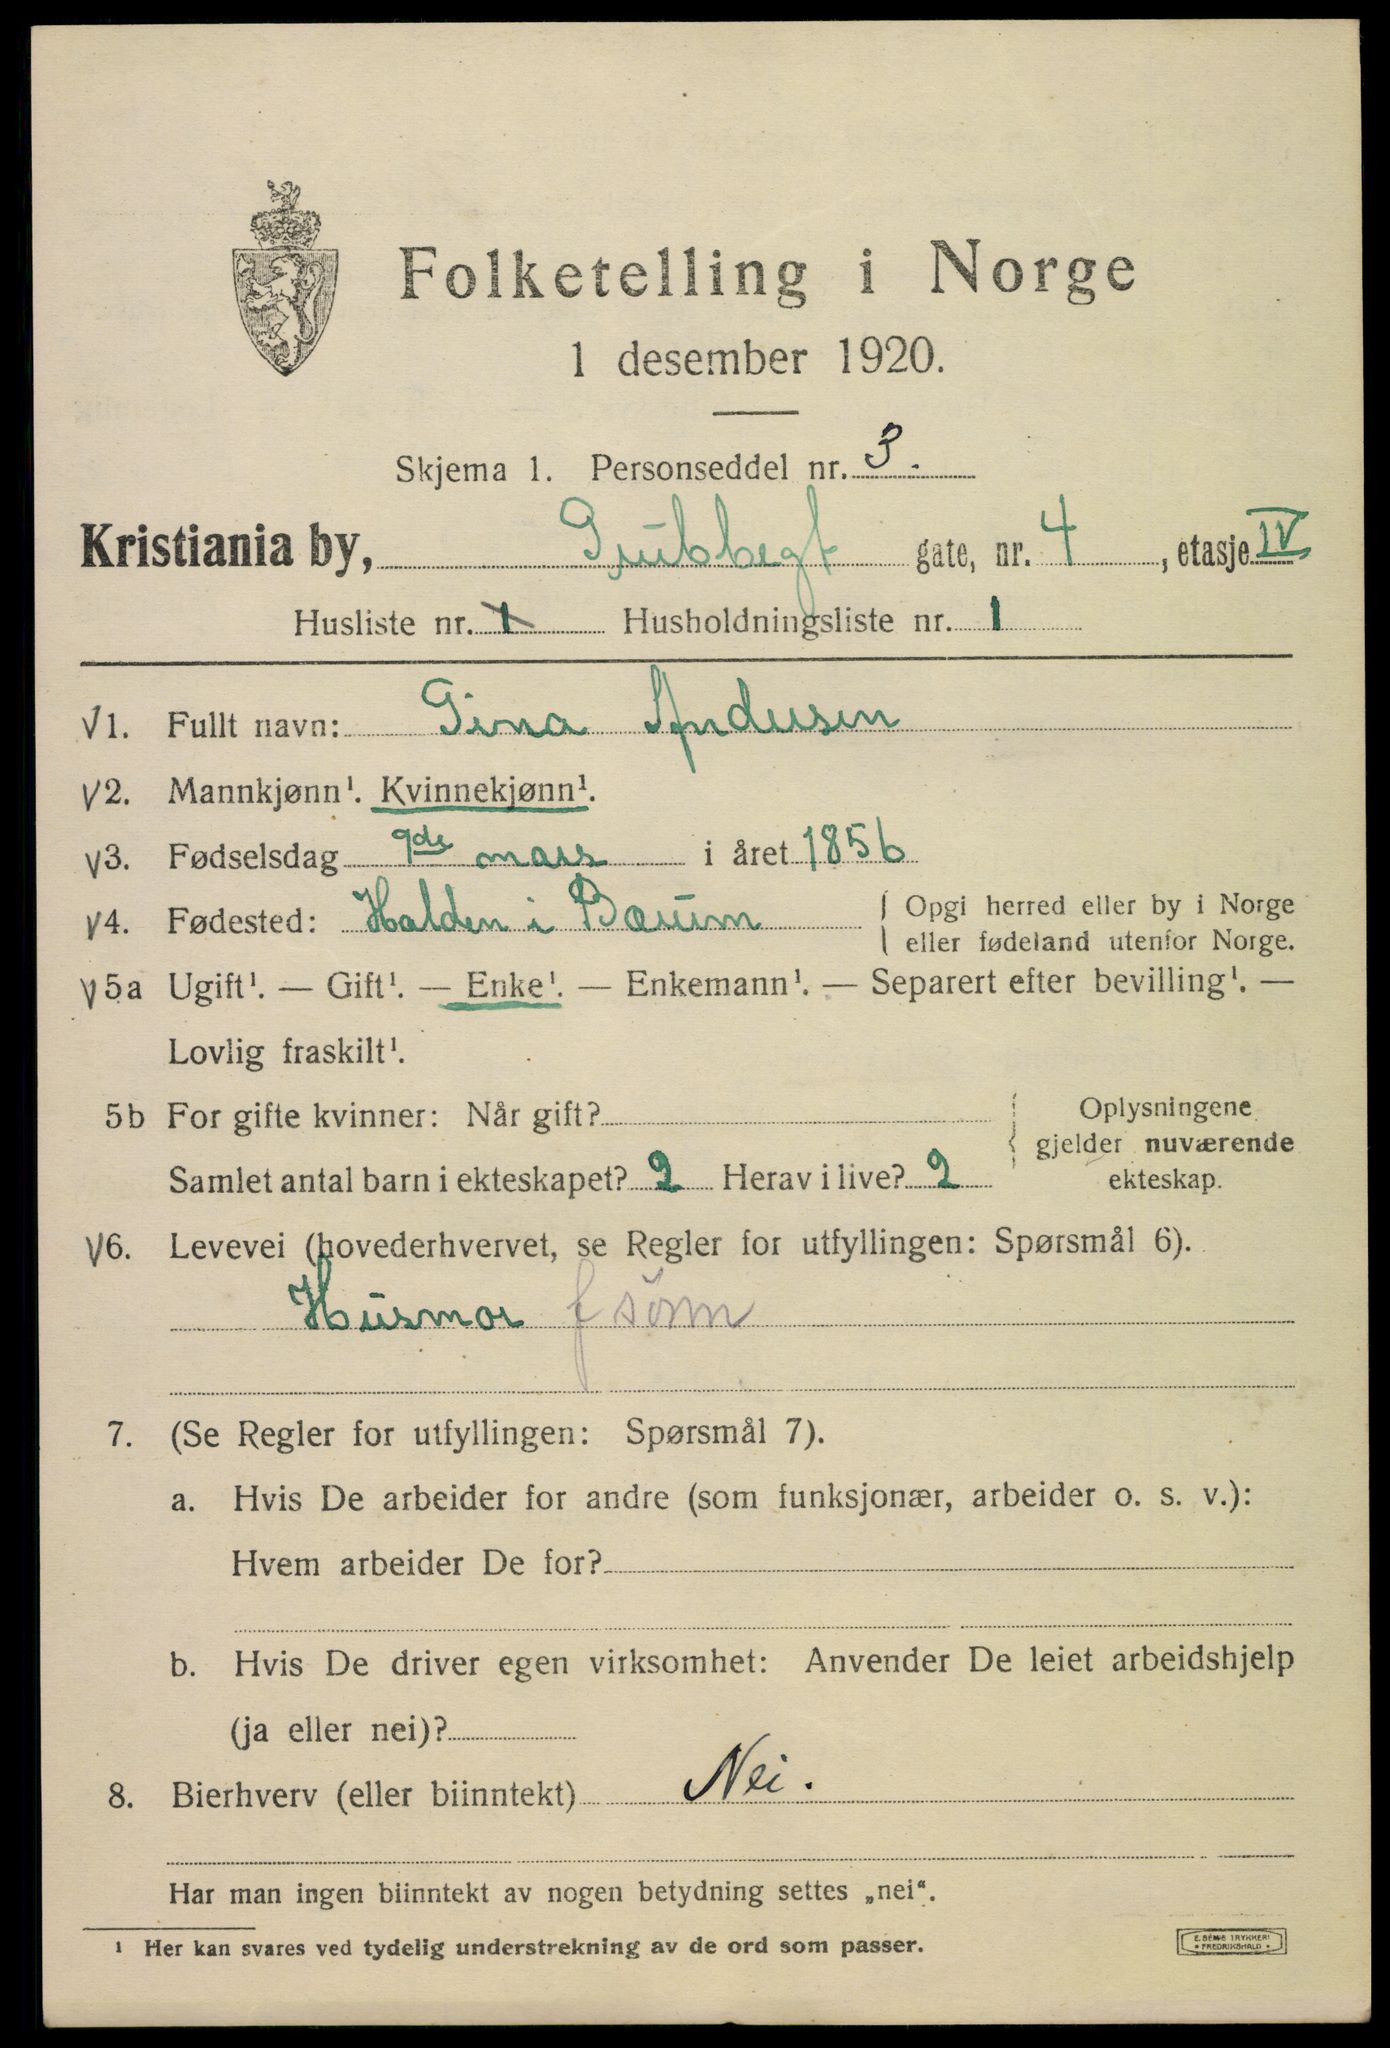 Folketelling i Norge
1 desember 1920.
Skjema 1. Personseddel nr. 3.
Kristiania by, Grubbegt gate, nr. 4, etasje IV
Husliste nr. 1 Husholdningsliste nr. 1
V1. Fullt navn: Gina Andersen
V2. Mannkjønn¹. Kvinnekjønn¹.
V3. Fødselsdag 9de mars i året 1856
V4. Fødested: Halden i Bærum { Opgi herred eller by i Norge
eller fødeland utenfor Norge.
V5a Ugift¹. — Gift¹. — Enke¹. — Enkemann¹. — Separert efter bevilling¹. —
Lovlig fraskilt¹.
5b For gifte kvinner: Når gift? { Oplysningene
gjelder nuværende
Samlet antal barn i ekteskapet? 2 Herav i live? 2 ekteskap.
V6. Levevei (hovederhvervet, se Regler for utfyllingen: Spørsmål 6).
Husmor f sönn
7. (Se Regler for utfyllingen: Spørsmål 7).
a. Hvis De arbeider for andre (som funksjonær, arbeider o. s. v.):
Hvem arbeider De for?
b. Hvis De driver egen virksomhet: Anvender De leiet arbeidshjelp
(ja eller nei)?
8. Bierhverv (eller biinntekt) Nei.
Har man ingen biinntekt av nogen betydning settes „nei“.
¹ Her kan svares ved tydelig understrekning av de ord som passer.
E. SEMS TRYKKERI
• FREDRIKSHALD •